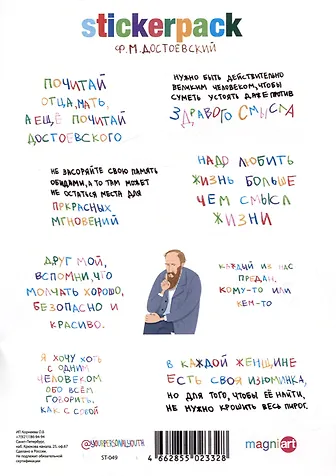 stickerpack
Ф.М.ДОСТОЕВСКИЙ
ПОЧИТАЙ
ОТЦА, МАТЬ,
А ЕЩЁ ПОЧИТАЙ
ДОСТОЕВСКОГО
НУЖНО БЫТЬ ДЕЙСТВИТЕЛЬНО
ВЕЛИКИМ ЧЕЛОВЕКОМ, ЧТОБЫ
СУМЕТЬ УСТОЯТЬ ДАЖЕ ПРОТИВ
ЗДРАВОГО СМЫСЛА
НЕ ЗАСОРЯЙТЕ СВОЮ ПАМЯТЬ
ОБИДАМИ, А ТО ТАМ МОЖЕТ
НЕ ОСТАТЬСЯ МЕСТА ДЛЯ
ПРЕКРАСНЫХ
МГНОВЕНИЙ
НАДО ЛЮБИТЬ
ЖИЗНЬ БОЛЬШЕ
ЧЕМ СМЫСЛ
ЖИЗНИ
ДРУГ МОЙ,
ВСПОМНИ, ЧТО
МОЛЧАТЬ ХОРОШО,
БЕЗОПАСНО И
КРАСИВО.
КАЖДЫЙ ИЗ НАС
ПРЕДАН,
КОМУ-ТО ИЛИ
КЕМ-ТО
Я ХОЧУ ХОТЬ
С ОДНИМ
ЧЕЛОВЕКОМ
ОБО ВСЁМ
ГОВОРИТЬ,
КАК С СОБОЙ
В КАЖДОЙ ЖЕНЩИНЕ
ЕСТЬ СВОЯ ИЗЮМИНКА,
НО ДЛЯ ТОГО, ЧТОБЫ ЕЁ НАЙТИ,
НЕ НУЖНО КРОШИТЬ ВЕСЬ ПИРОГ.
ИП Корнеева О.В.
Санкт-Петербург,
Сделано в России.
Не подлежит обязательной
сертификации
@YOURPERSONALYOUTH
ST-049
4 662855 023328
magniart